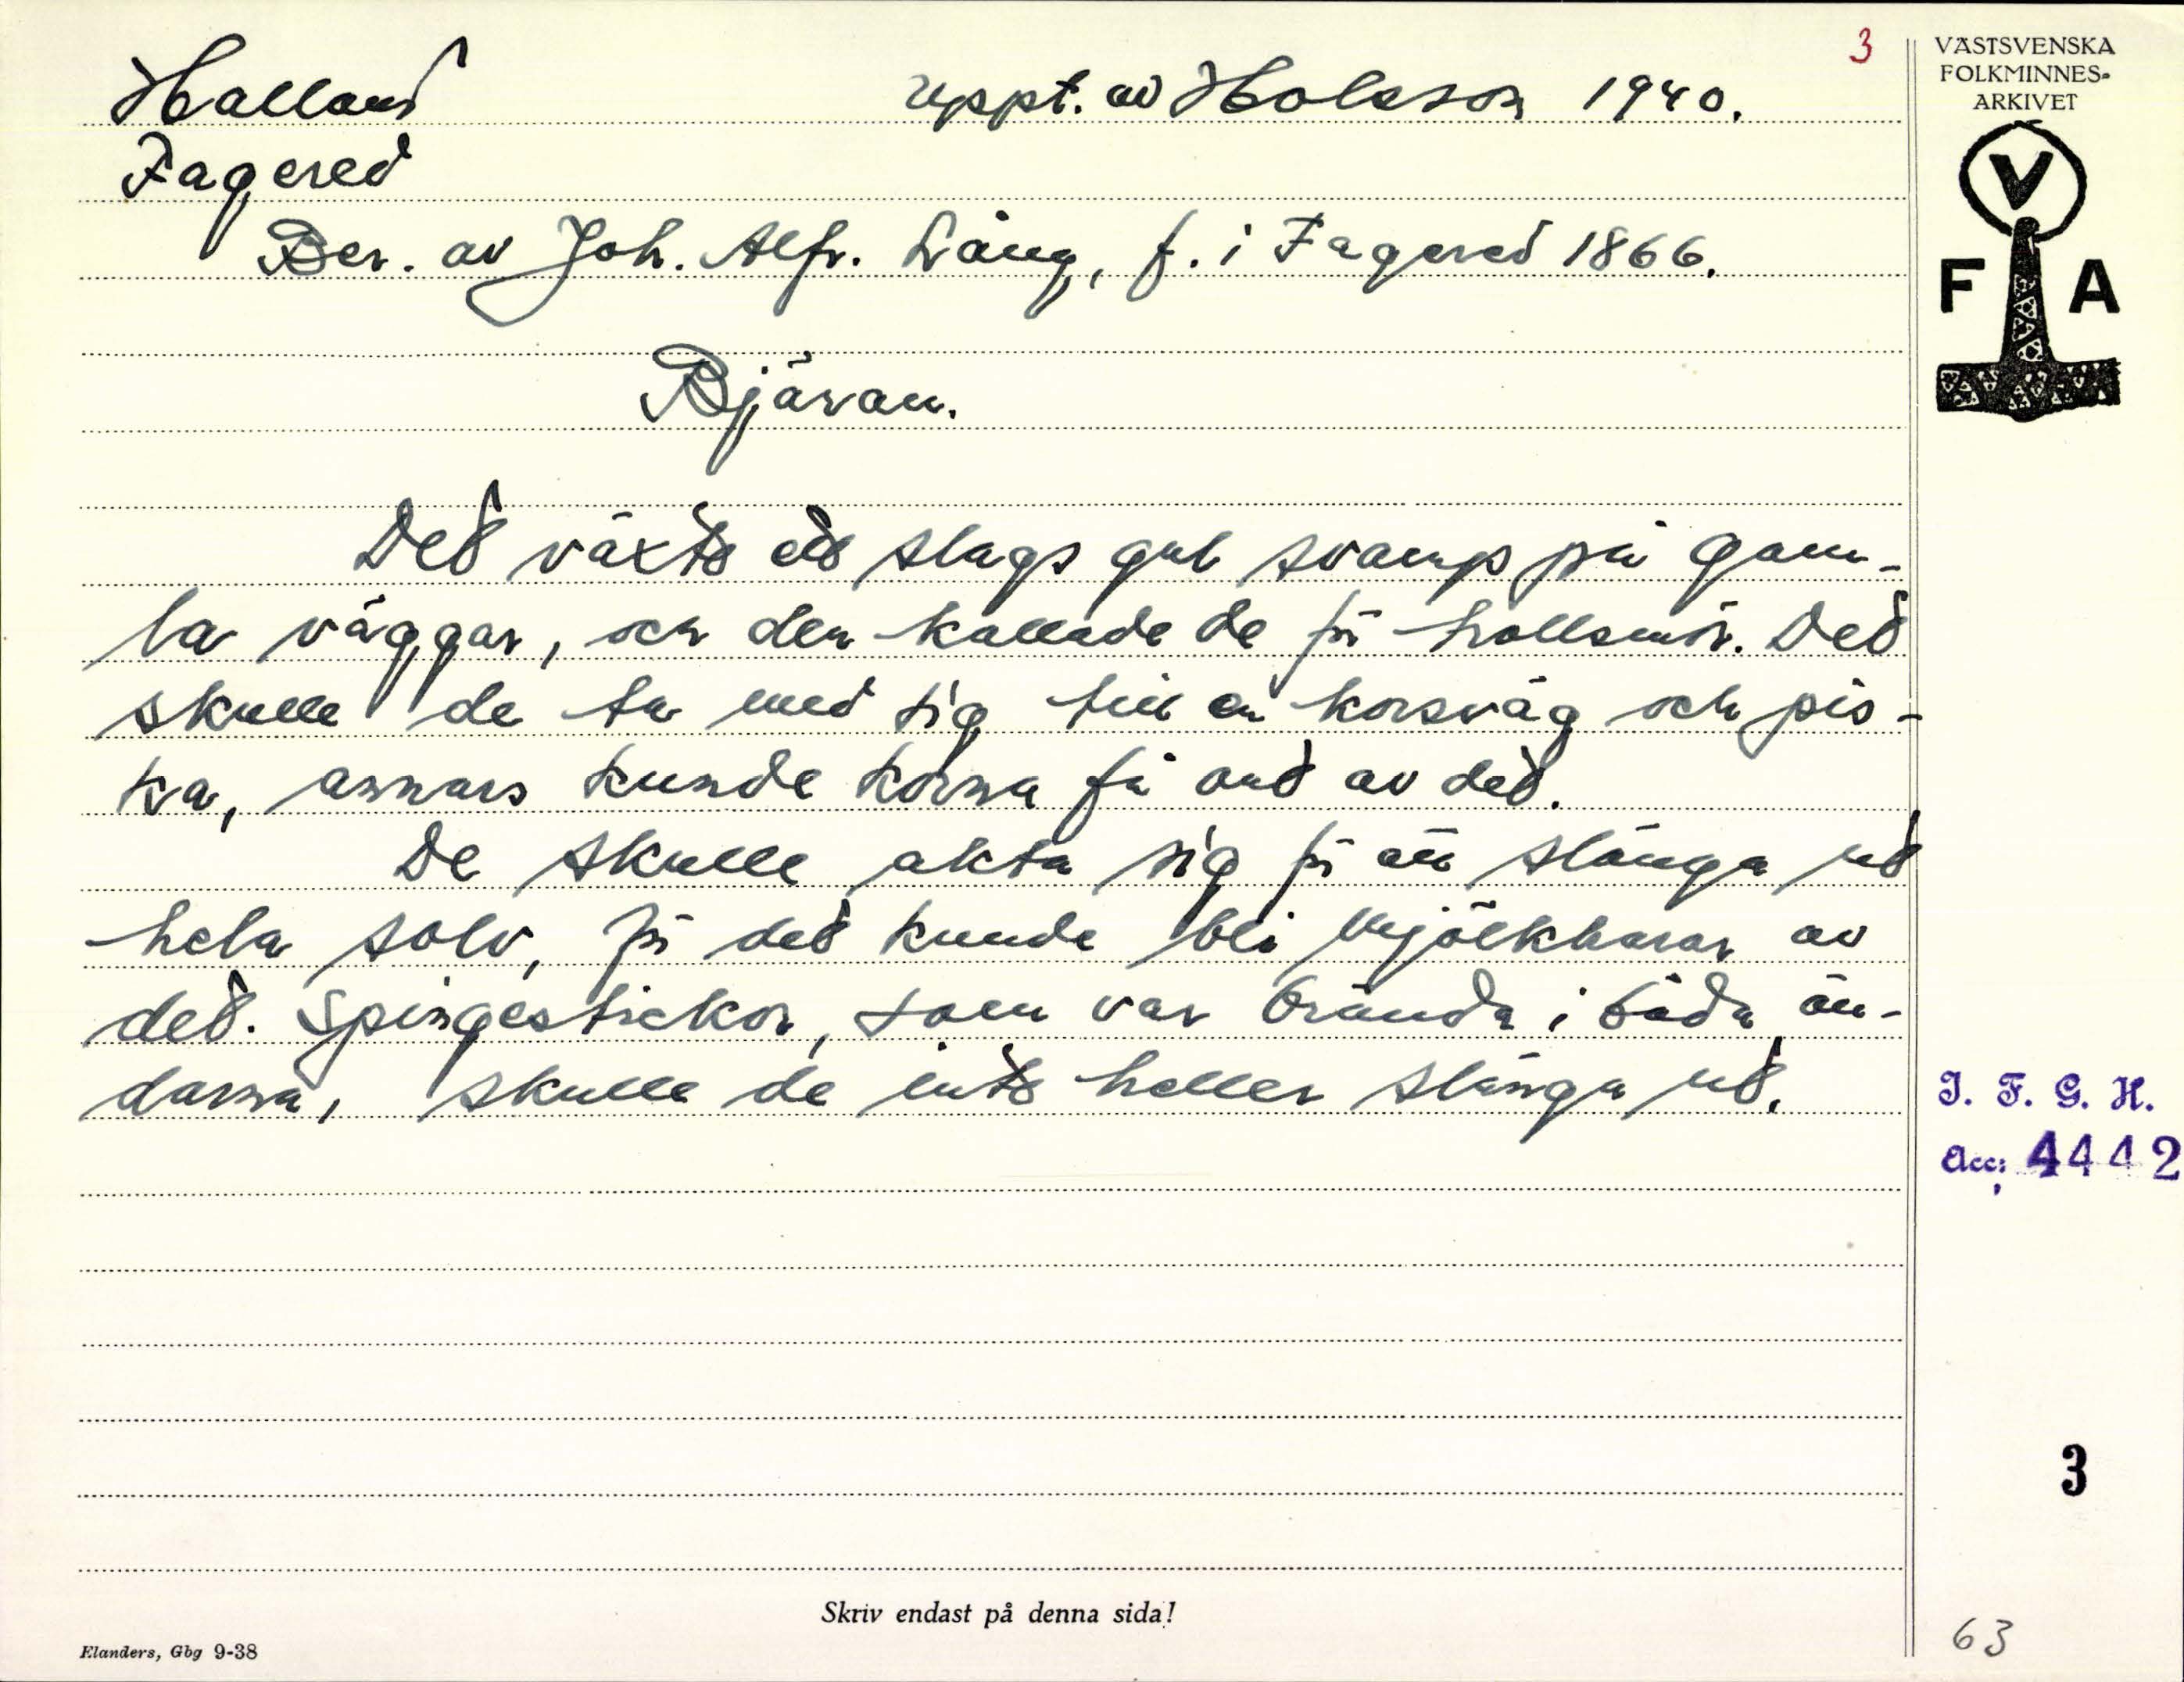 Halland
uppt. av Holsson 1940.
3
Fagered
Ber. av Joh. Alfr. Lång, f. i Fagered 1866.
Bjäran.
Det växte ett slags gul svamp på gam-
la väggar, och den kallade de för trollsmör. Det
skulle de ta med sig till en korsväg och pis-
ka, annars kunde korna få ont av det.
De skulle akta sig för att slänga ut
hela solv, för det kunde bli mjölkharar av
det. Spingestickor, som var brända i båda än-
darna, skulle de inte heller slänga ut.
Skriv endast på denna sida!
Elanders, Gbg 9-38
VÄSTSVENSKA
FOLKMINNES-
ARKIVET
V
F A
I. F. G. H.
Acc: 4442
3
63